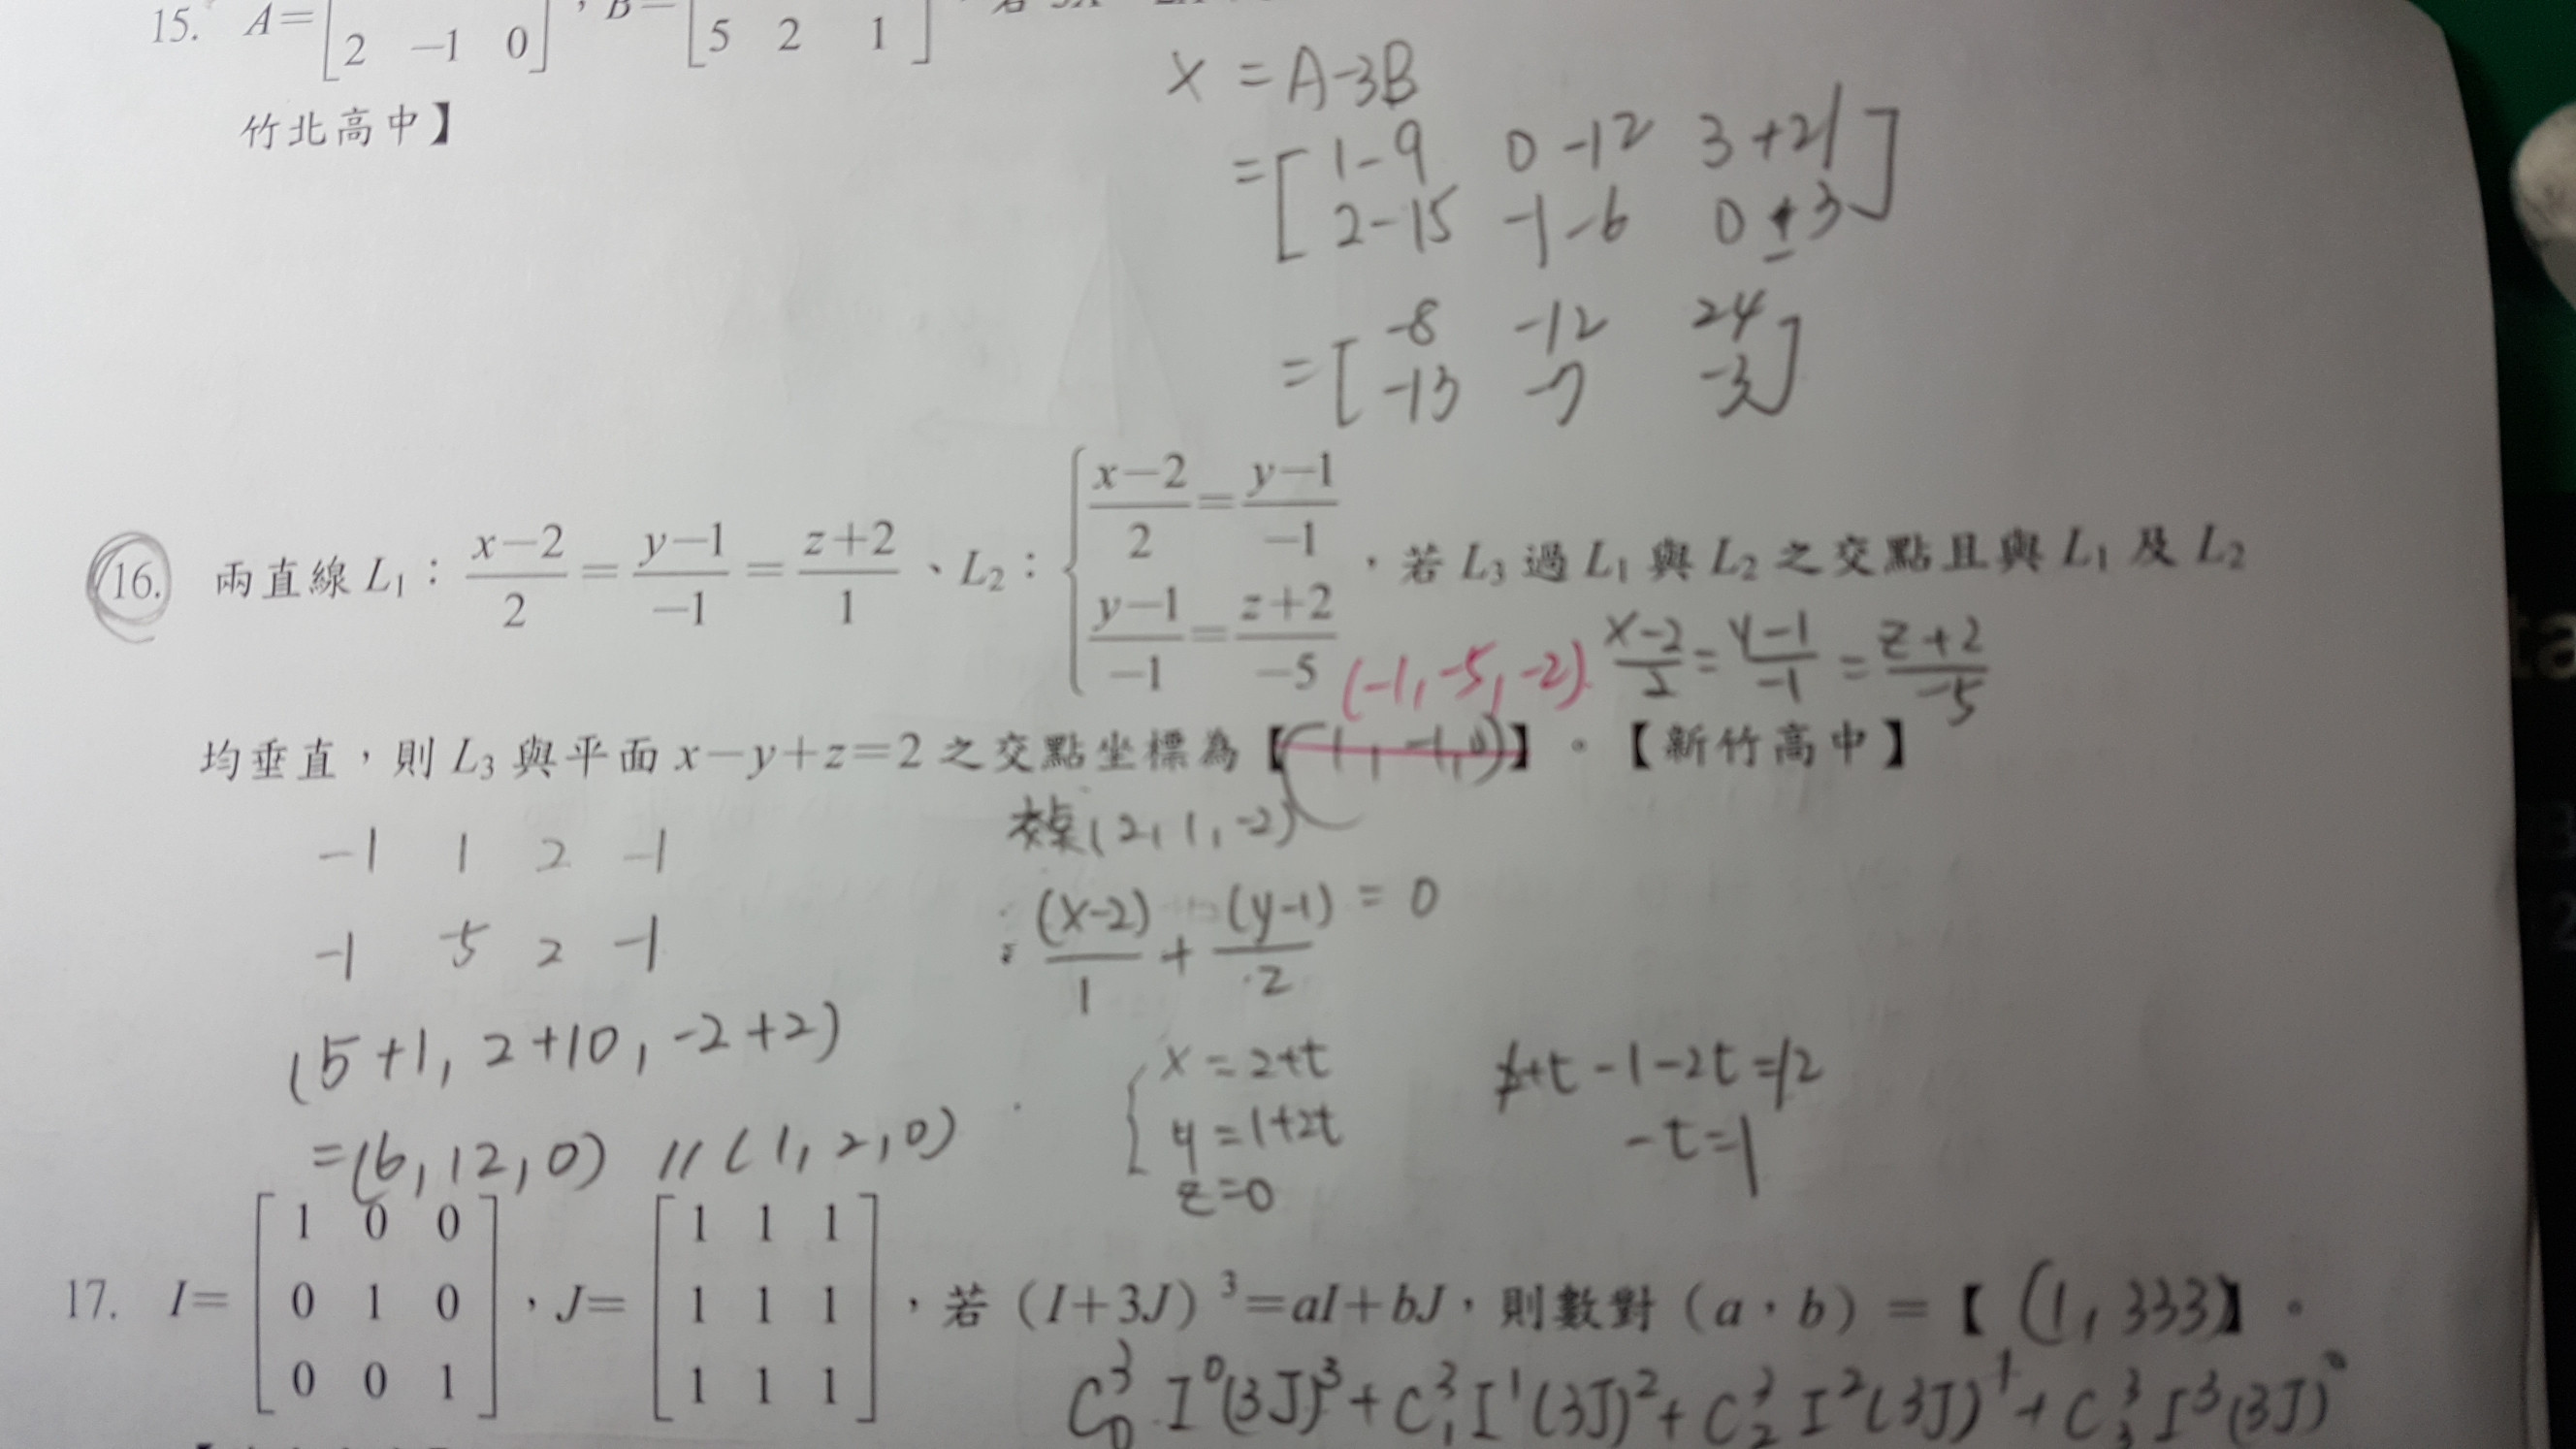 15. A=[2 −1 0], B=[5 2 1]
竹北高中】
X = A-3B
=[1-9 0-12 3+21
2-15 -1-6 0±3]
=[-8 -12 24
-13 -7 -3]
16. 兩直線 L₁：(x−2)/2=(y−1)/−1=(z+2)/1、L₂：{(x−2)/2=(y−1)/−1, (y−1)/−1=(z+2)/−5，若 L₃ 過 L₁ 與 L₂ 之交點且與 L₁ 及 L₂
(-1, -5, -2) (x-2)/2=(y-1)/-1=(z+2)/-5
均垂直，則 L₃ 與平面 x−y+z=2 之交點坐標為【(1, -1, 0)】。【新竹高中】
-1 1 2 -1
(2, 1, -2)
-1 -5 2 -1
(x-2)/1 + (y-1)/2 = 0
(5+1, 2+10, -2+2)
{x=2+t
y=1+2t
z=0
2+t-1-2t=2
-t=1
=(6, 12, 0) // (1, 2, 0)
17. I=[1 0 0
0 1 0
0 0 1]，J=[1 1 1
1 1 1
1 1 1]，若（I+3J）³=aI+bJ，則數對（a，b）=【(1, 333)】。
C³₀ I⁰(3J)³+C³₁I¹(3J)²+C³₂I²(3J)¹+C³₃I³(3J)⁰